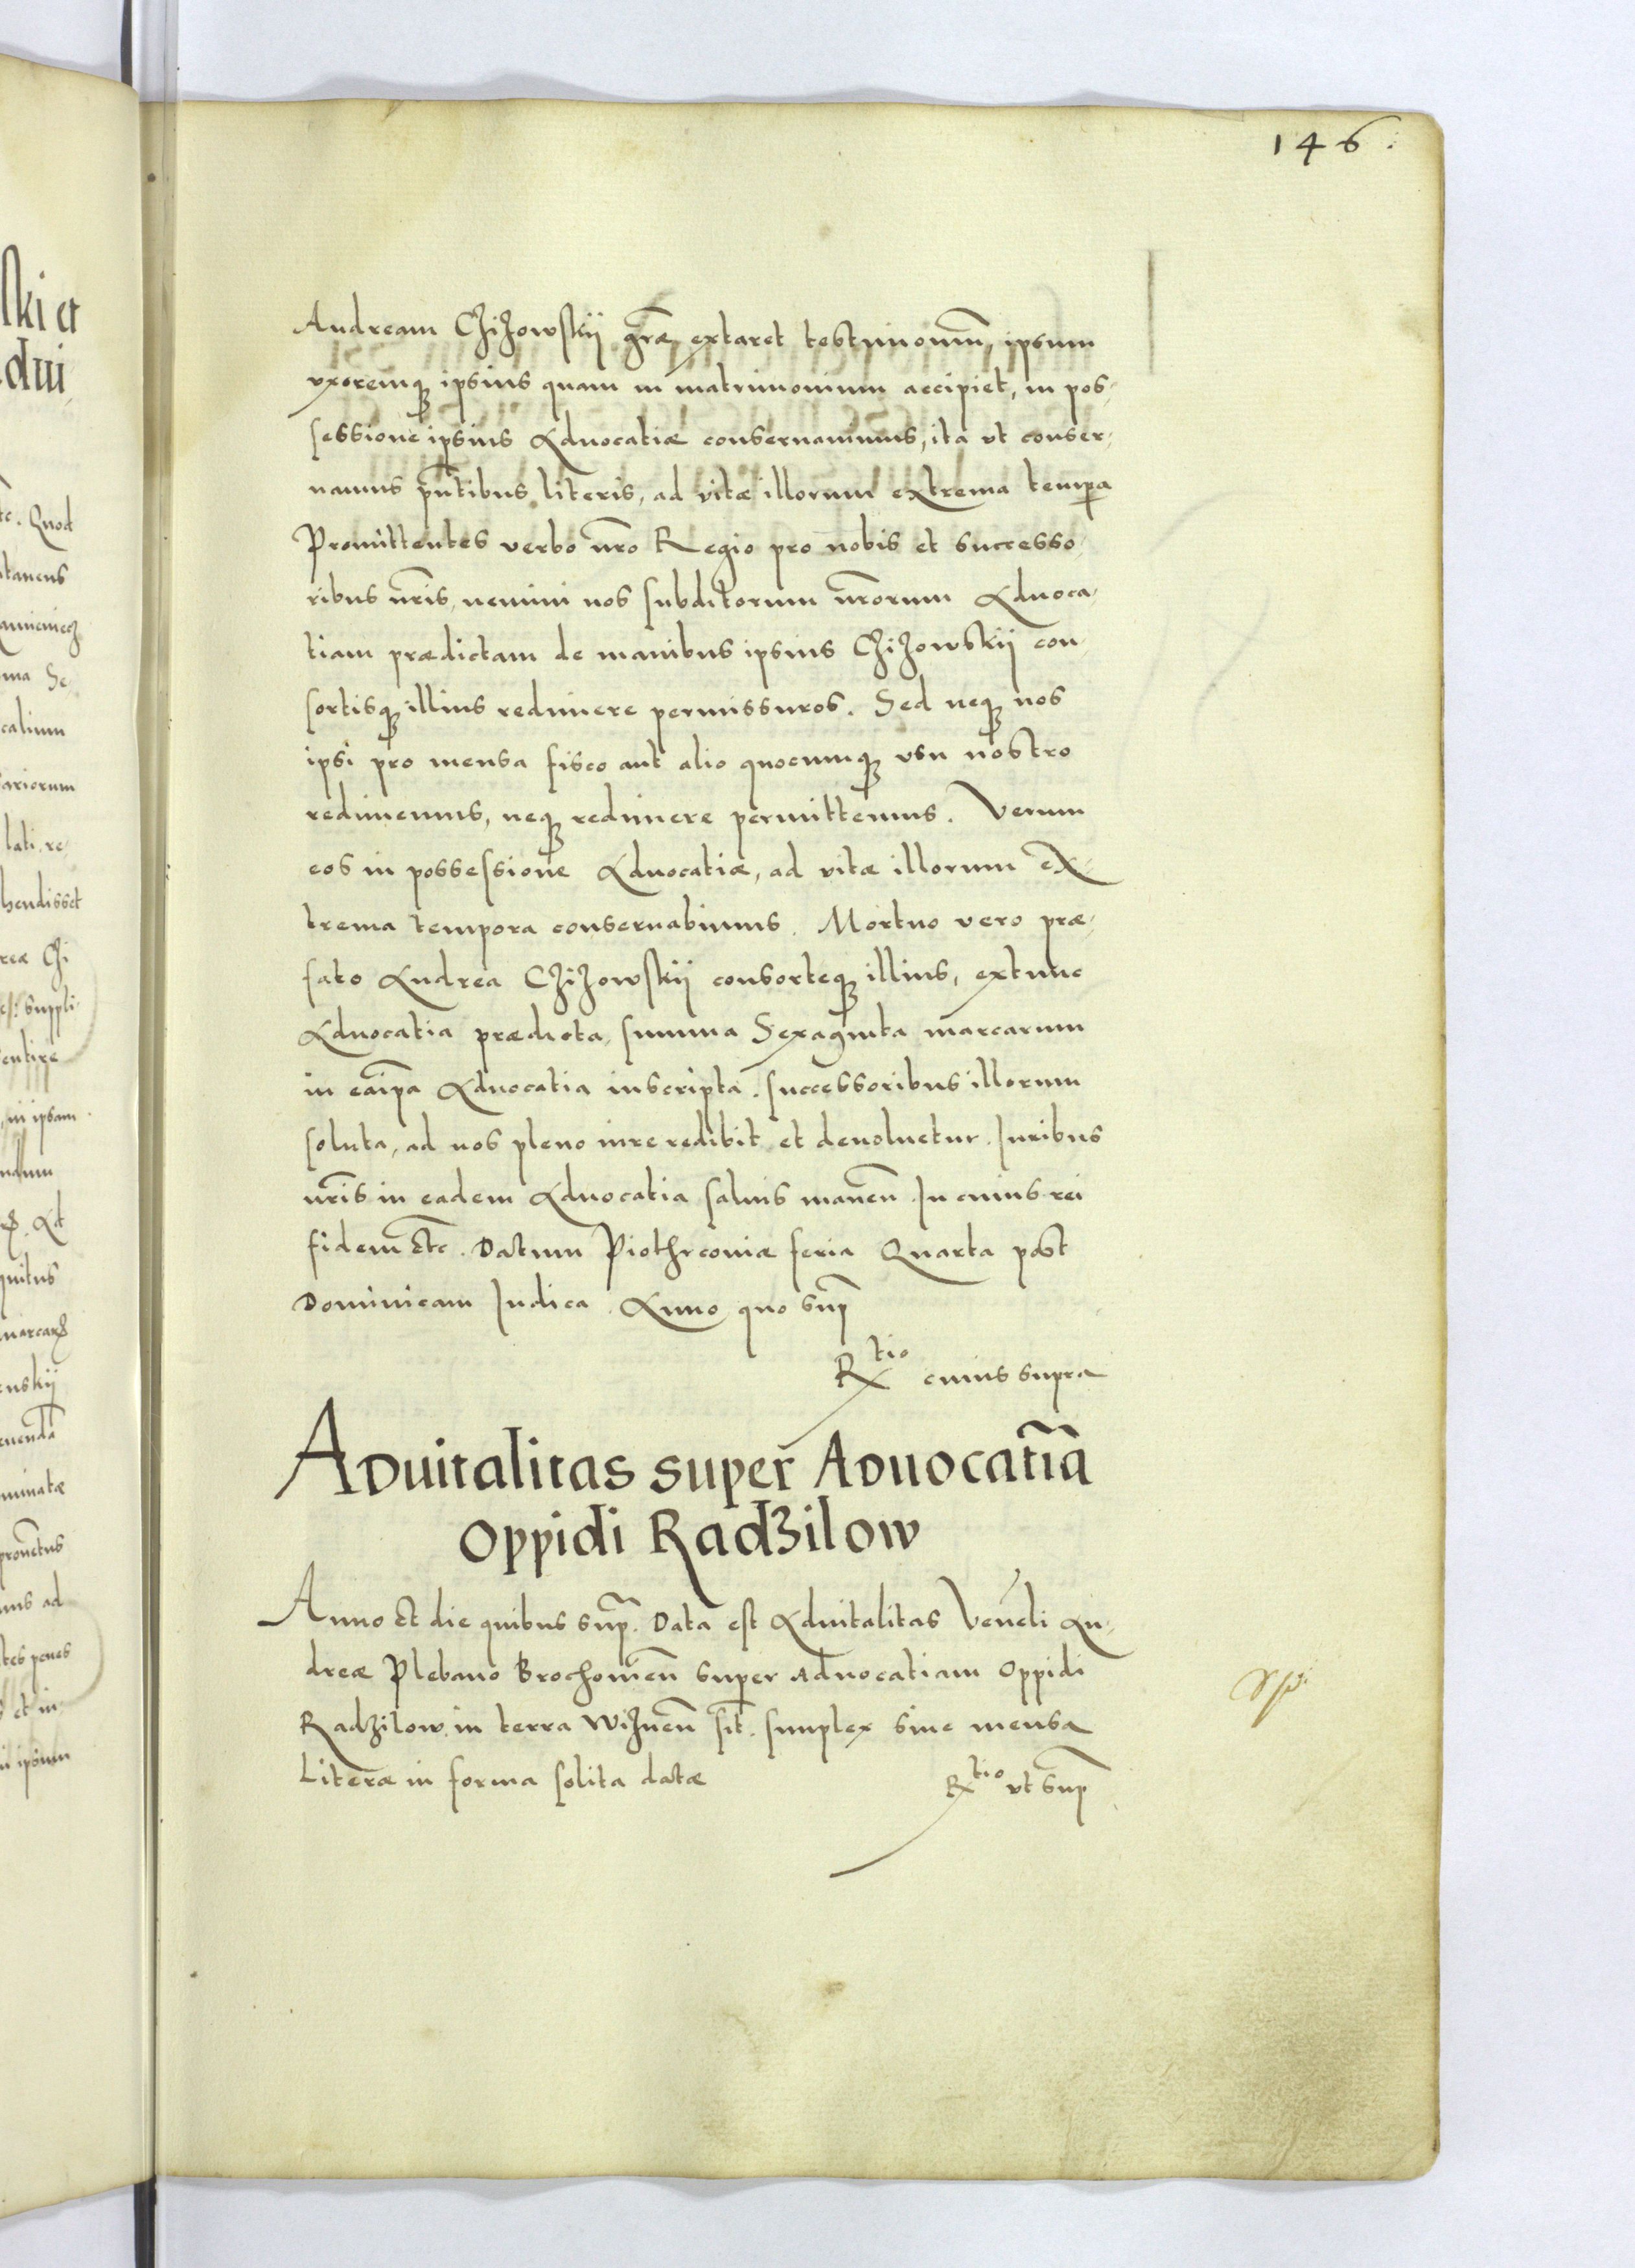 146.
Andream Chiżowskij grãe extaret testimoniũ, ipsum
vxoremq3 ipsius quam in matrimonium accipiet, in pos-
sessione ipsius Aduocatiæ conseruauimus, ita vt conser-
uamus pñtibus literis, ad vitæ illorum extrema temp̃a
Promittentes verbo nr̃o Regio pro nobis et successo-
ribus nr̃is, nemini nos subditorum nr̃orum Aduoca-
tiam prædictam de manibus ipsius Chiżowskij con-
sortisq3 illius redimere permissuros. Sed neq3 nos
ipsi pro mensa fisco aut alio quocumq3 vsu nostro
redimemus, neq3 redimere permittemus. Verum
eos in possessione Aduocatiæ, ad vitæ illorum ex-
trema tempora conseruabimus. Mortuo vero præ-
fato Andrea Chiżowskij consorteq3 illius, extunc
Aduocatia prædicta, summa Sexaginta marcarum
in eaip̃a Aduocatia inscripta. successoribus illorum
soluta, ad nos pleno iure redibit et deuoluetur. Iuribus
nr̃is in eadem Aduocatia saluis maneñ. In cuius rei
fidem Etc. Datum Piothrcouiæ feria Quarta post
Dominicam Iudica. Anno quo sup̃
R<sup>tio</sup> cuius supra
ADuitalitas super ADuocatiã
Oppidi Radzilow
Anno Et die quibus sup̃. Data est Aduitalitas Veneli An-
dreæ Plebano Brochouieñ super Aduocatiam Oppidi
Radzilow in terra Wizneñ sit. simplex sine mensa
Literæ in forma solita datæ
R<sup>tio</sup> vt sup̃